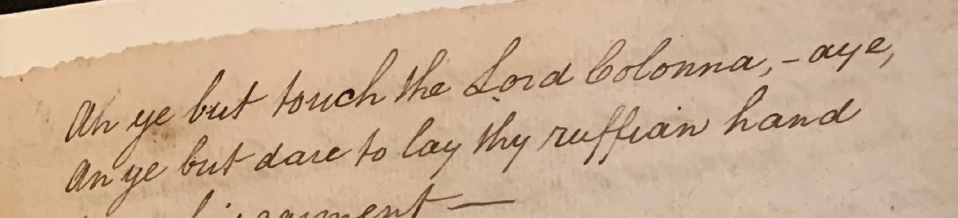 An ye but touch the Lord Colonna, – aye,
An ye but dare to lay thy ruffian hand
garment —